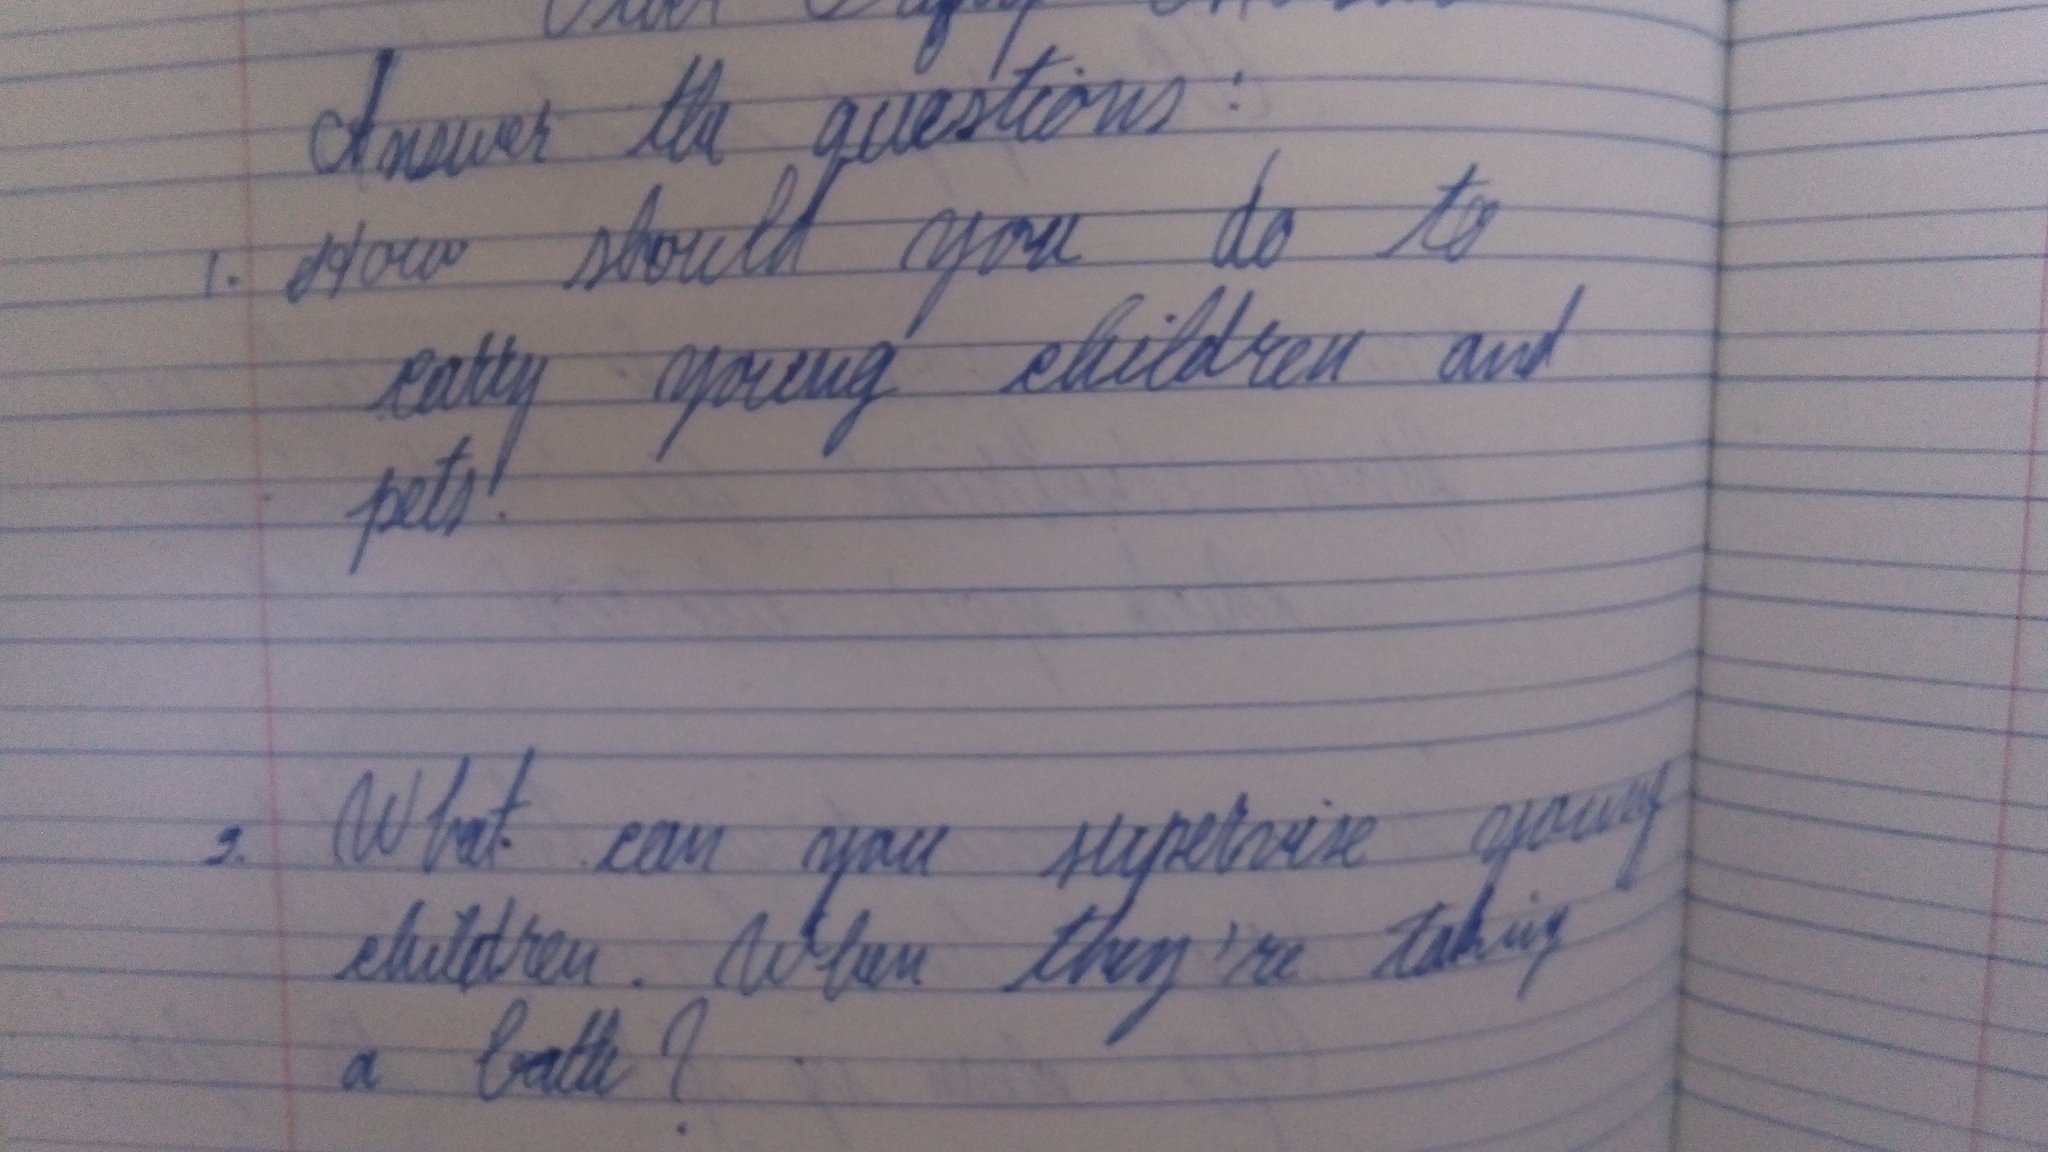 Answer the questions:
1. How should you do to
carry young children and
pets.
2. What can you supervise young
children. When they're taking
a bath?